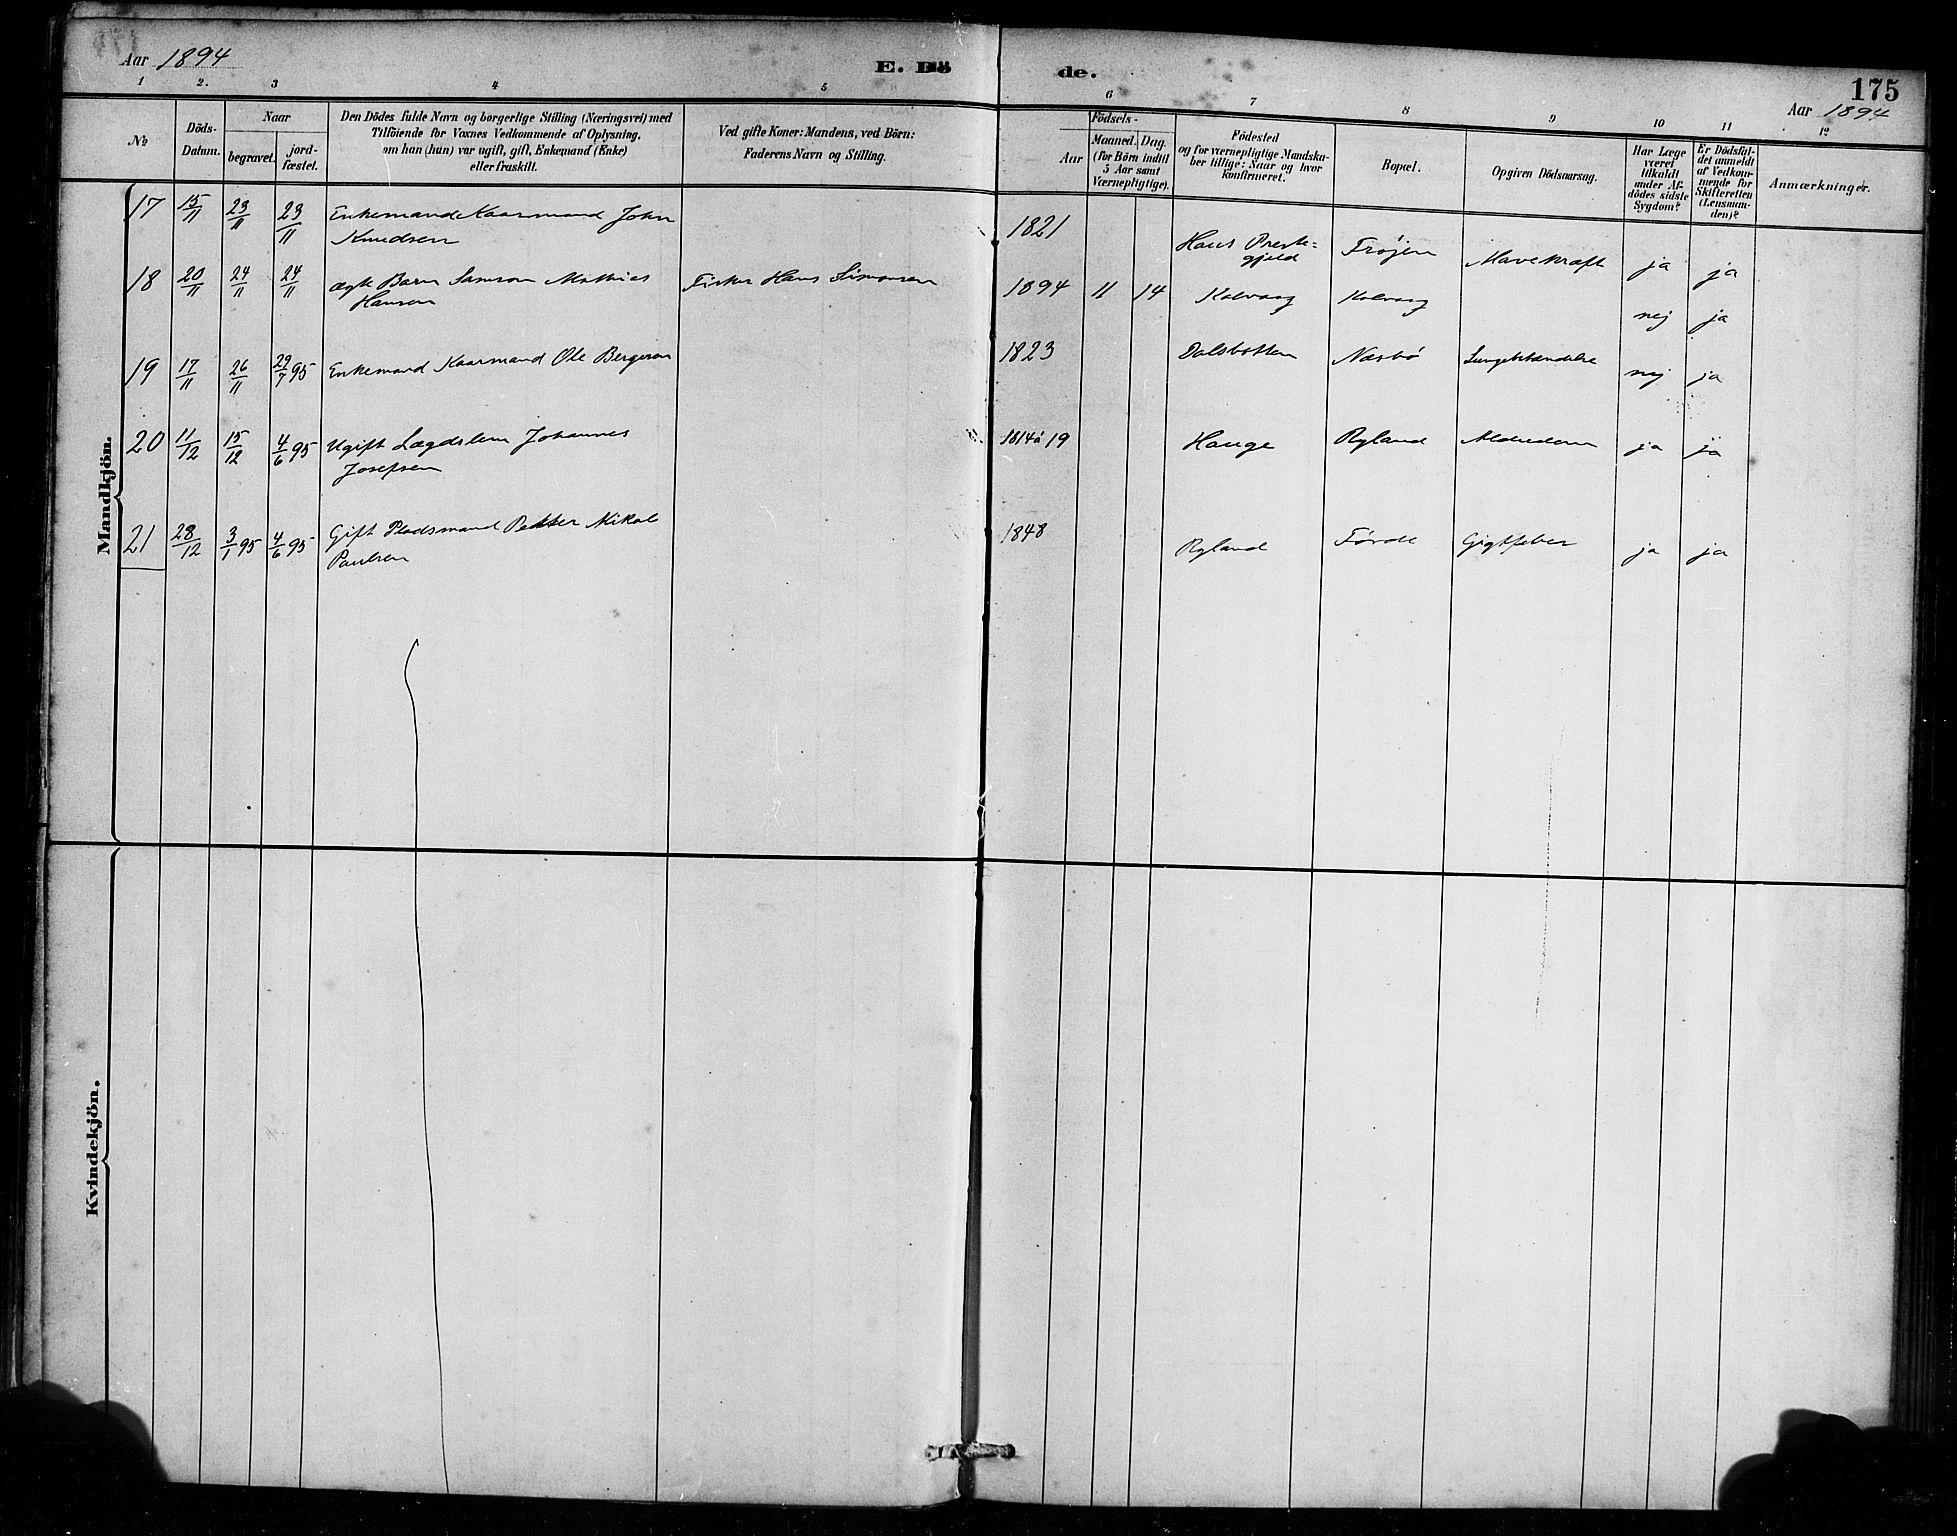 Aar 1894
E. Dö
de.
175
Aar 1894
1 2. 3 4 5 6 7 8 9 10 11 12
№
Döds-
Datum.
Naar
begravet.
jord-
fæstet.
Den Dödes fulde Navn og borgerlige Stilling (Næringsvei) med
Tilföiende for Voxnes Vedkommende af Oplysning,
om han (hun) var ugift, gift, Enkemand (Enke)
eller fraskilt.
Ved gifte Koner: Mandens, ved Börn:
Faderens Navn og Stilling.
Födsels-
Aar
Maaned.
Dag.
(for Börn indtil
5 Aar samt
Værnepligtige).
Födested
og for værnepligtige Mandska-
ber tillige: Naar og hvor
konfirmeret.
Bopæl.
Opgiven Dödsaarsag.
Har Læge
været
tilkaldt
under Af-
dödes sidste
Sygdom?
Er Dödsfal-
det anmeldt
af Vedkom-
mende for
Skifteretten
(Lensman-
den)?
Anmærkninger.
Mandkjön.
17 15/11 23/11 23/11 Enkemand Kaarmand John
Knudsen
1821 Haus Preste=
gjeld Frøjen Mavekræft ja ja
18 20/11 24/11 24/11 ægte Barn Samson Mathias
Hansen
Fisker Hans Simonsen 1894 11 14 Kalvaag Kalvaag nej ja
19 17/11 26/11 29/7 95 Enkemand Kaarmand Ole Bergeson 1823 Dalsbotten Næsbø Lungebetændelse nej ja
20 11/12 15/12 4/6 95 Ugift Lægdslem Johannes
Josefsen
1814 á 19 Hauge Ryland Alderdom ja ja
21 28/12 3/1 95 4/6 95 Gift Pladsmand Petter Nikol
Paulsen
1848 Ryland Førde Gigtfeber ja ja
Kvindekjön.